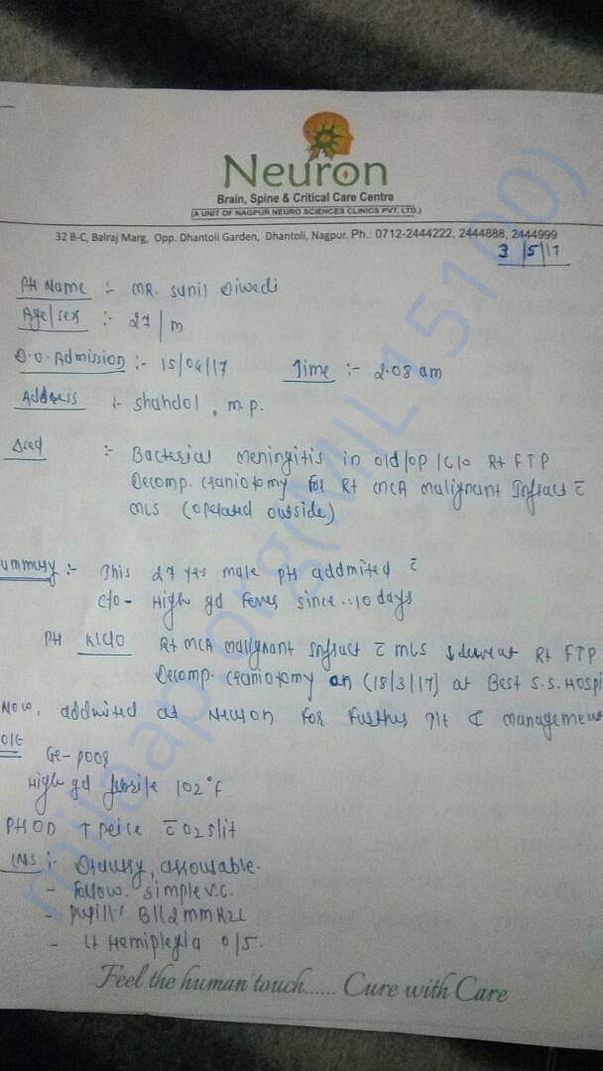 Neuron
Brain, Spine & Critical Care Centre
(A UNIT OF NAGPUR NEURO SCIENCES CLINICS PVT. LTD.)
32 B-C, Balraj Marg, Opp. Dhantoli Garden, Dhantoli, Nagpur. Ph.: 0712-2444222, 2444888, 2444999
3/5/17
Pt Name :- MR. Sunil Diwedi
Age/sex :- 27/m
D.O. Admission :- 15/04/17 Time :- 2.08 am
Address :- Shahdol, m.p.
:- Bacterial meningitis in old/op/c/o Rt FTP
Decomp. craniotomy for Rt MCA malignant Infract c̄
MLS (operated outside)
ummery :- This 27 yrs male pts addmited c̄
c/o - High gd fever since 10 days
Pt K/c/o Rt MCA malignant Infract c̄ MLS Rt FTP
Decomp. craniotomy on (18/3/17) at Best S.S. Hospi
Now, addmited at Neuron for further & managemen
O/E
GC-poor
High gd febrile 102°F
c̄ O2 5lit
CNS :- Drausy, arousable.
- Follow. simple v.c.
- pupill's B/L 2mm
- Lt Hemiplegia 0/5.
Feel the human touch...... Cure with Care
milaap.org(MIL15100)